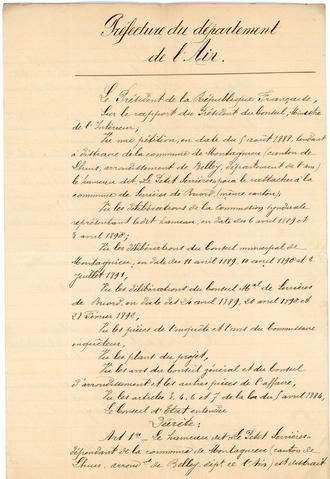 Préfecture du département
de l'Ain.
Le Président de la République Française,
Sur le rapport du Président du Conseil, Ministre
de l'Intérieur;
Vu une pétition, en date du 5 août 1888, tendant
à distraire de la commune de Montagnieu (canton de
Lhuis, arrondissement de Belley, département de l'Ain)
le hameau dit, Le Petit Serrières, pour le rattacher à la
commune de Serrières de Briord (même canton),
Vu les délibérations de la Commission syndicale
représentant ledit hameau, en date des 6 avril 1889 et
3 avril 1892;
Vu les délibérations du Conseil municipal de
Montagnieu, en date des 11 avril 1889, 10 avril 1890 et 2
juillet 1891,
Vu les délibérations du Conseil Mal de Serrières
de Briord, en date des 24 avril 1889, 20 avril 1890 et
28 Février 1892,
Vu les pièces de l'enquête et l'avis du Commissaire
enquêteur,
Vu les plans du projet,
Vu les avis du Conseil général et du Conseil
d'arrondissement et les autres pièces de l'affaire,
Vu les articles 3, 4, 6 et 7 de la loi du 5 avril 1884,
Le Conseil d'Etat entendu
Décrète:
Art 1er — Le hameau dit Le Petit Serrières
dépendant de la commune de Montagnieu (canton de
Lhuis, arrondt de Belley, dépt de l'Ain) est distrait